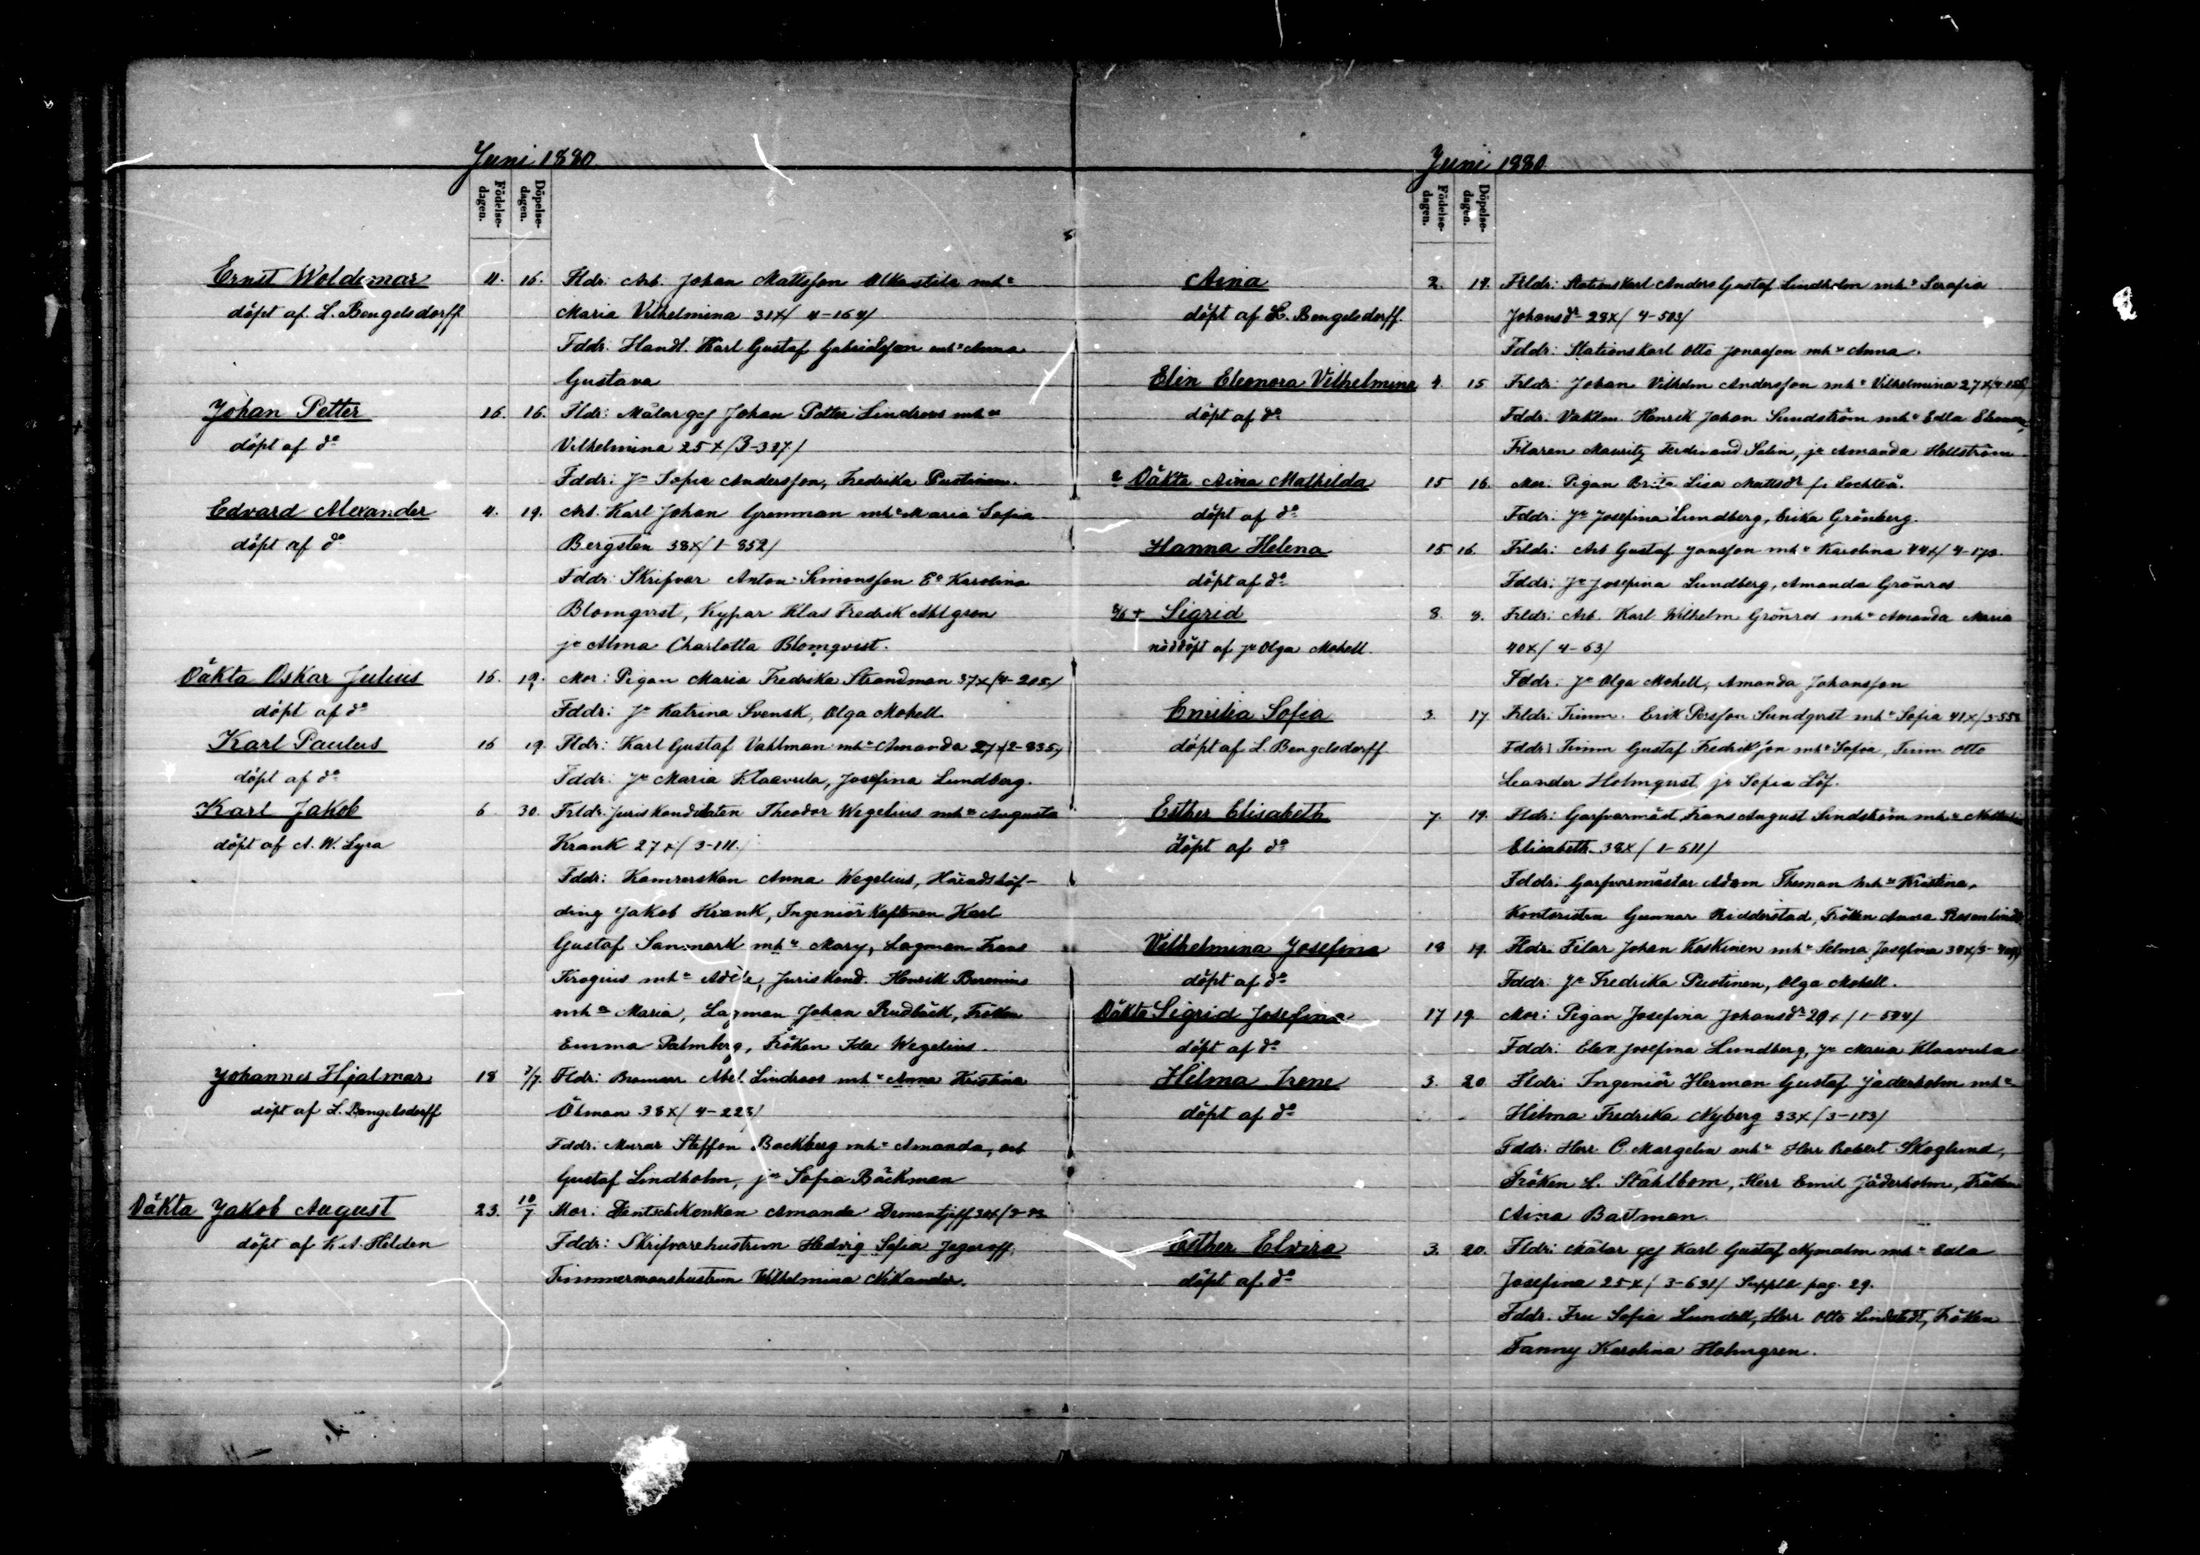 Juni 1880
Födelse-dagen. Döpelse-dagen.
Ernst Woldemar 11. 16. Fldr: Arb. Johan Mattsson Alkastila mh^a
döpt af L. Bengelsdorff Maria Vilhelmina 31x/ 4-164/
Fddr. Handl. Karl Gustaf Gabrielsson mh^a Anna
Gustava
Johan Petter 16. 16. Fldr: Målar gef Johan Petter Lindroos mh^a
döpt af d^o Vilhelmina 25x/3-327/
Fddr: J^n Sofia Andersson, Fredrika Pustinen.
Edvard Alexander 4. 19. Arb. Karl Johan Grenman mh^a Maria Sofia
döpt af d^o Bergsten 38x/1-852/
Fddr: Skrifvar Anton Simonsson E^a Karolina
Blomqvist, Kypar Klas Fredrik Ahlgren
j^n Alma Charlotta Blomqvist.
Oäkta Oskar Julius 16. 19. Mor: Pigan Maria Fredrika Strandman 37x/4-205/
döpt af d^o Fddr: J^n Katrina Svensk, Olga Mohell
Karl Paulus 16 19. Fldr: Karl Gustaf Vahlman mh^a Amanda 27x/2-835/
döpt af d^o Fddr: J^n Maria Klaavula, Josefina Lundberg.
Karl Jakob 6. 30. Frldr. Juriskandidaten Theodor Wegelius mh^a Augusta
döpt af A. W. Lyra Krank 27x/3-111/
Fddr: Kamrerskan Anna Wegelius, Häradshöf-
ding Jakob Krank, Ingeniörkaptenen Karl
Gustaf Sanmark mh^a Mary, Lagman Frans
Krogius mh^a Adèle, Juriskand. Henrik Borenius
mh^a Maria, Lagman Johan Rudbäck, Fröken
Emma Palmberg, Fröken Ida Wegelius.
Johannes Hjalmar 18 /7. Fldr: Bromsar Abel Lindroos mh^a Anna Kristina
döpt af L. Bengelsdorff Öhman 38x/4-223/
Fddr: Murar Steffon Backberg mh^a Amanda, arb
Gustaf Lindholm, j^n Sofia Bäckman
Oäkta Jakob August 23. 10/7 Mor: Amanda Dementjeff
döpt af K. A. Hilden Fddr: Skrifvarehustrun Hedvig Sofia Jegoroff,
Timmermanshustrun Vilhelmina Nikander.
Juni 1880
Födelse-dagen. Döpelse-dagen.
Aina 2. 19. Frldr: Stationskarl Anders Gustaf Lindholm mh^a Serafia
döpt af L. Bengelsdorff. Johansd^r 28x/4-503/
Fddr: Stationskarl Otto Jonasson mh^a Anna.
Elin Eleonora Vilhelmina 4. 15 Frldr: Johan Vilhelm Andersson mh^a Vilhelmina 27x/
döpt af d^o Fddr. Vaktm Henrik Johan Sundström mh^a Edla
Filaren Mauritz Ferdinand Salin, j^n Amanda Hellström
Oäkta Aina Mathilda 15 16. Mor. Pigan Brita Lisa Mattsd^r fr Lochteå.
döpt af d^o Fddr: J^n Josefina Lundberg, Erika Grönberg.
Hanna Helena 15 16. Frldr: Arb Gustaf Jansson mh^a Karolina 44x/4-173.
döpt af d^o Fddr: J^n Josefina Lundberg, Amanda Grönros
8/6 + Sigrid 8. 8. Frldr: Arb. Karl Wilhelm Grönros mh^a Amanda Maria
nöddöpt af j^n Olga Mohell 40x/4-63/
Fddr: J^n Olga Mohell, Amanda Johansson
Emilia Sofia 3. 17 Frldr. Timm. Erik Persson Sundqvist mh^a Sofia 41x/
döpt af L. Bengelsdorff Fddr: Timm Gustaf Fredriksson mh^a Sofia, Timm Otto
Leander Holmqvist, j^n Sofia Löf.
Esther Elisabeth 7. 19. Fldr: Garfvarmäst Frans August Lindström mh^a
döpt af d^o Elisabeth 38x/1-511/
Fddr: Garfvarmästar Adam Theman mh^a Kristina,
Kontoristen Gunnar Ridderstad, Fröken Anna
Vilhelmina Josefina 18 19. Fldr. Filar Johan Keskinen mh^a Selma Josefina 34x/
döpt af d^o Fddr: J^n Fredrika Pustinen, Olga Mohell.
Oäkta Sigrid Josefina 17 19. Mor: Pigan Josefina Johansd^r 29x/1-594/
döpt af d^o Fddr: Elev Josefina Lundberg, j^n Maria Klaavula
Helma Irene 3. 20 Fldr: Ingeniör Herman Gustaf Jäderholm mh^a
döpt af d^o Hilma Fredrika Nyberg 33x/3-183/
Fddr: Herr C. Margelin mh^a Herr Robert Skoglund,
Fröken L. Ståhlbom, Herr Emil Jäderholm, Fröken
Aina Bartman.
Esther Elvira 3. 20. Fldr: Målar gef Karl Gustaf Nymalm mh^a Edla
döpt af d^o Josefina 25x/3-631/ Supple pag. 29.
Fddr. Fru Sofia Lundell, Herr Otto Lindstedt, Fröken
Fanny Karolina Holmgren.